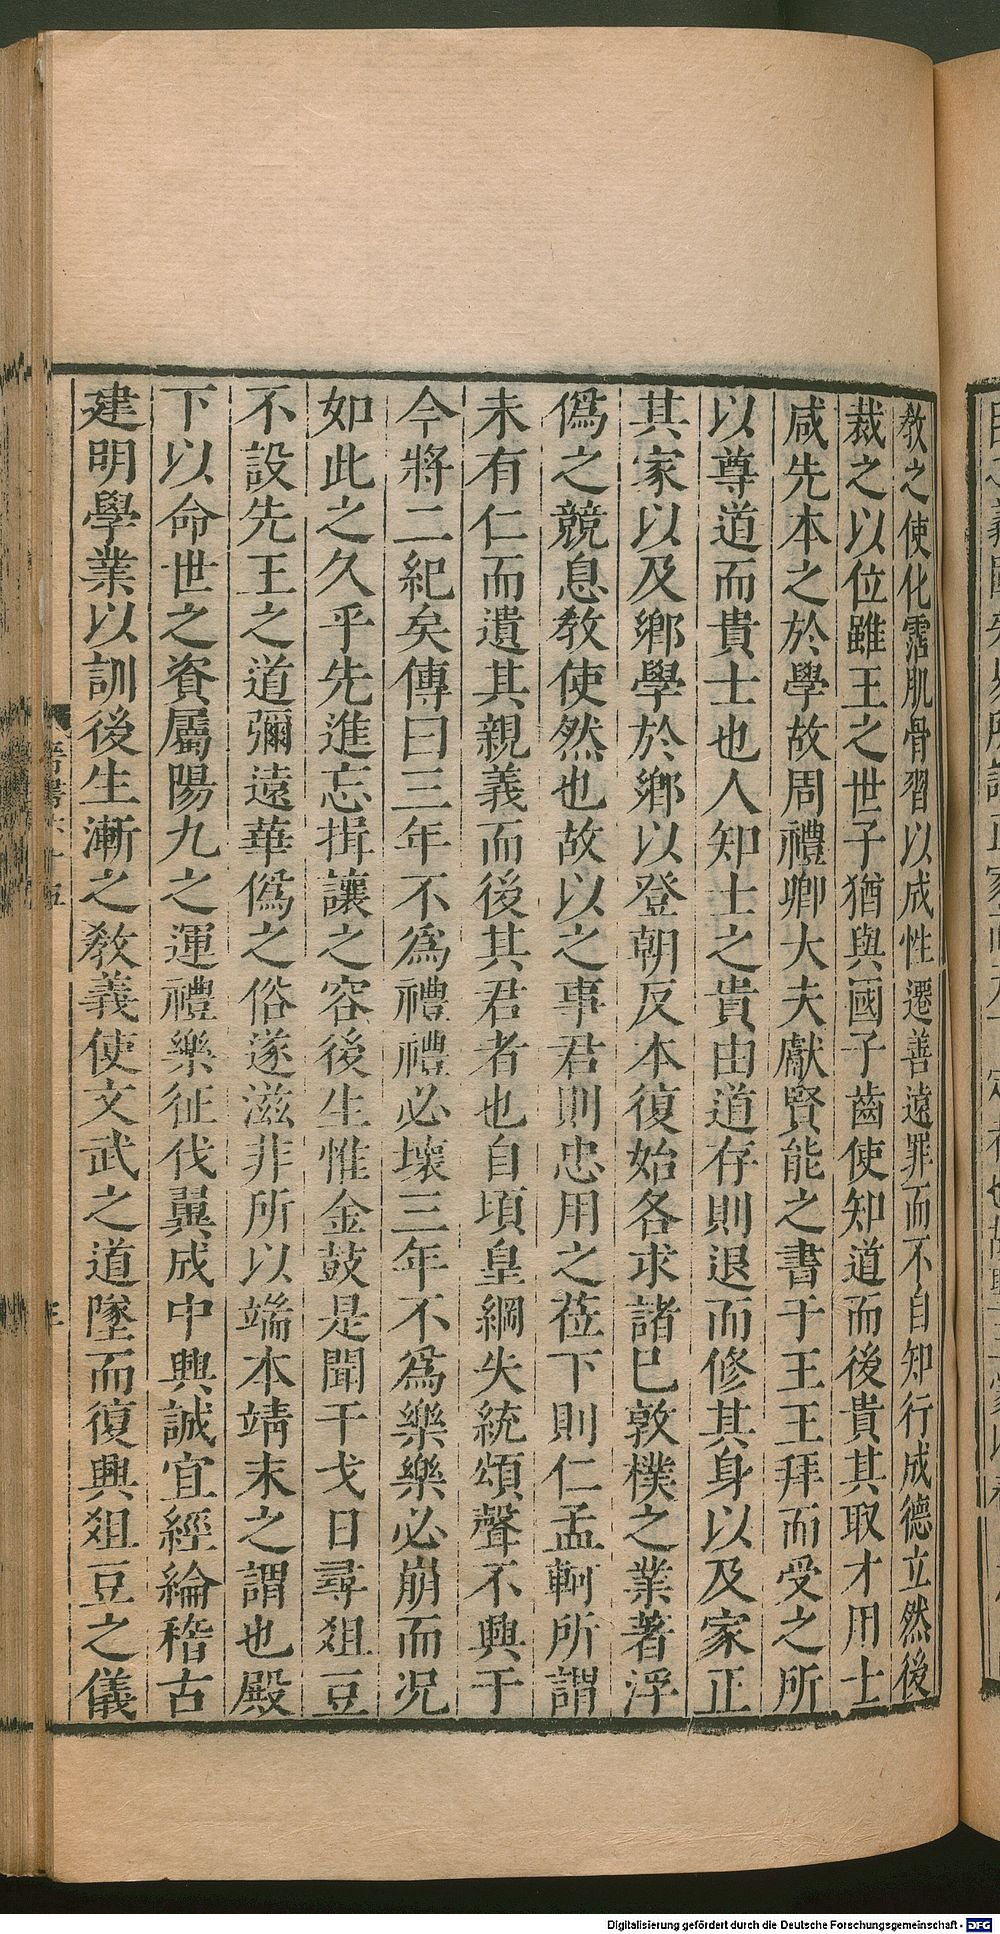 敎之使化霑肌骨習以成性遷善遠罪而不自知行成德立然後
裁之以位雖王之世子猶與國子齒使知道而後貴其取才用士
咸先本之於學故周禮卿大夫獻賢能之書于王王拜而受之所
以尊道而貴士也人知士之貴由道存則退而修其身以及家正
其家以及鄉學於鄉以登朝反本復始各求諸已敦樸之業著浮
僞之競息敎使然也故以之事君則忠用之莅下則仁孟軻所謂
未有仁而遺其親義而後其君者也自頃皇綱失統頌聲不興于
今將二紀矣傳曰三年不爲禮禮必壞三年不爲樂樂必崩而况
如此之久乎先進忘揖讓之容後生惟金鼓是聞干戈日尋爼豆
不設先王之道彌遠華僞之俗遂滋非所以端本靖末之謂也殿
下以命世之資屬陽九之運禮樂征伐翼成中興誠宜經綸稽古
建明學業以訓後生漸之敎義使文武之道墜而復興爼豆之儀
晉書六十五
Digitalisierung gefördert durch die Deutsche Forschungsgemeinschaft - DFG